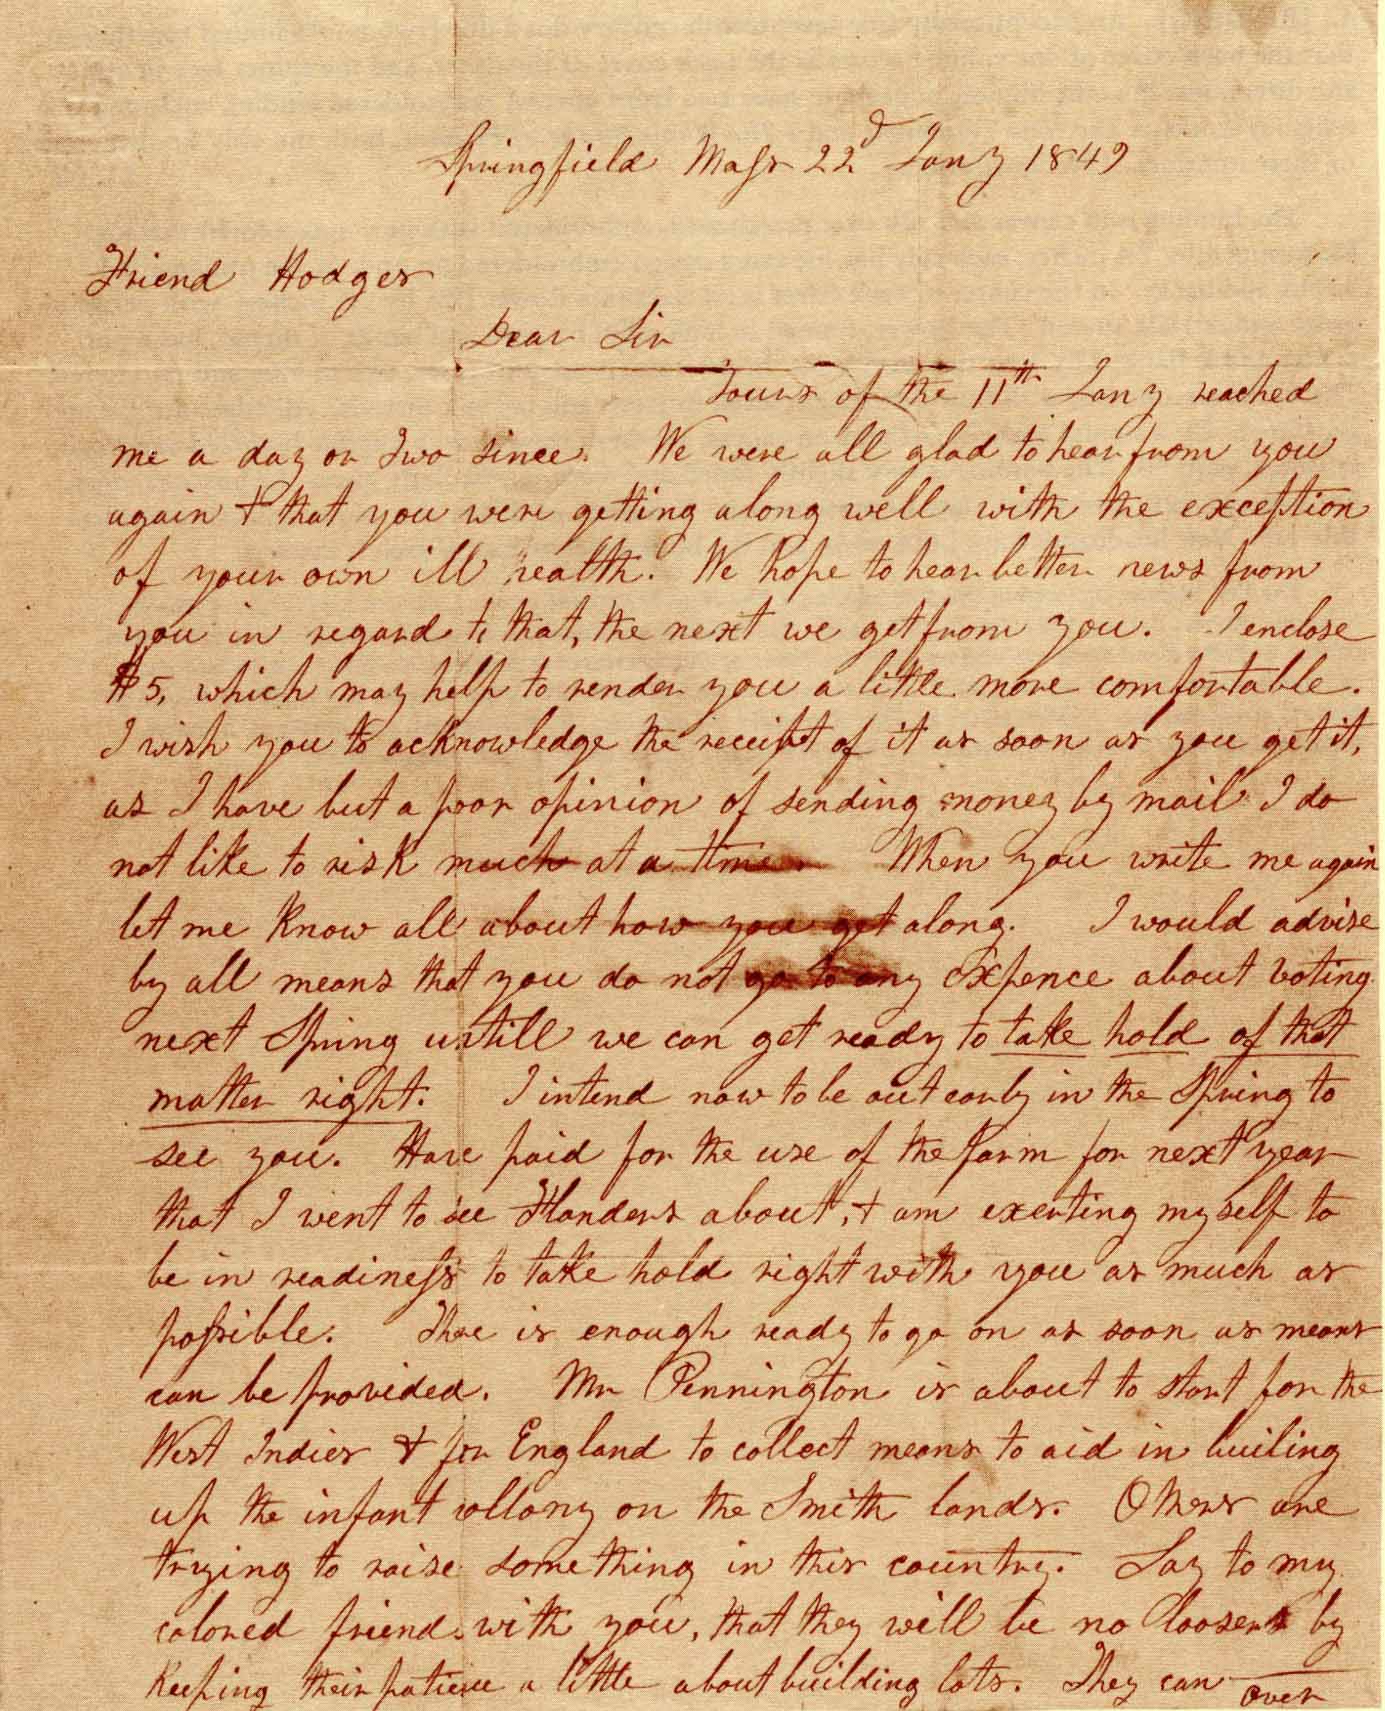 Springfield Mass 22d Jany 1849
Friend Hodges
Dear Sir
Yours of the 11th Jany reached
me a day or two since. We were all glad to hear from you
again & that you were getting along well with the exception
of your own ill health. We hope to hear better news from
you in regard to that, the next we get from you. I enclose
$5, which may help to render you a little more comfortable.
I wish you to acknowledge the receipt of it as soon as you get it,
as I have but a poor opinion of sending money by mail I do
not like to risk much at a time. When you write me again
let me know all about how you get along. I would advise
by all means that you do not go to any expence about voting
next Spring untill we can get ready to take hold of that
matter right. I intend now to be out early in the Spring to
see you. Have paid for the use of the farm for next year
that I went to see Flanders about, & am exerting myself to
be in readiness to take hold right with you as much as
possible. There is enough ready to go on as soon as means
can be provided. Mr Pennington is about to start for the
West Indies & for England to collect means to aid in builing
up the infant collony on the Smith lands. Others are
trying to raise something in this country. Say to my
colored friends with you, that they will be no loosers by
keeping their patience a little about building lots. They can
over